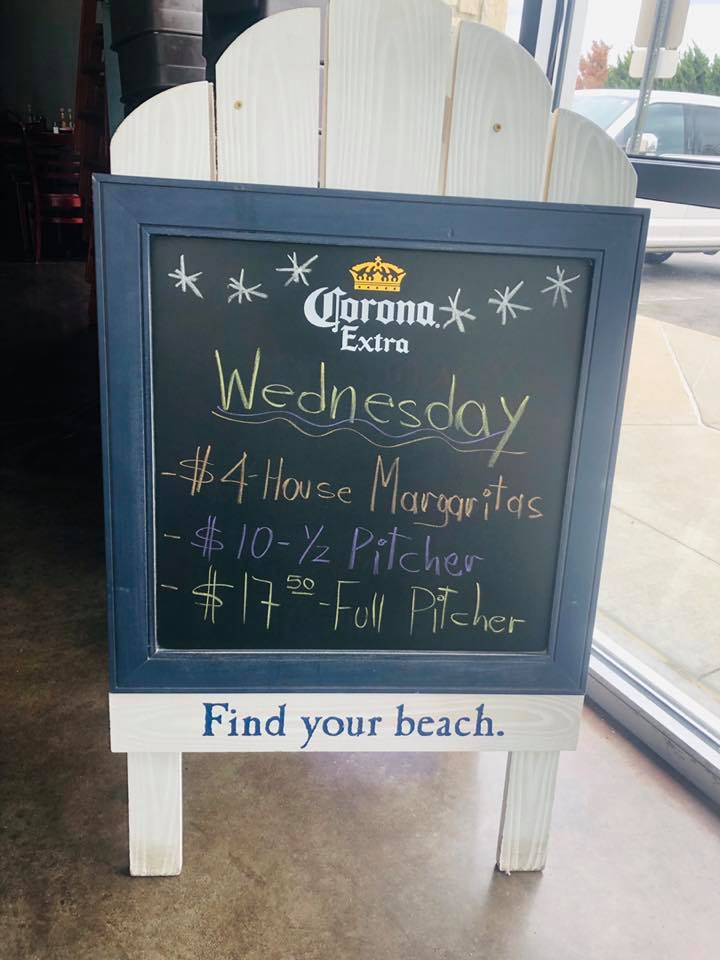 Corona
Extra
Wednesday
-$4-House Margaritas
-$10-½ Pitcher
-$17⁵⁰-Full Pitcher
Find your beach.